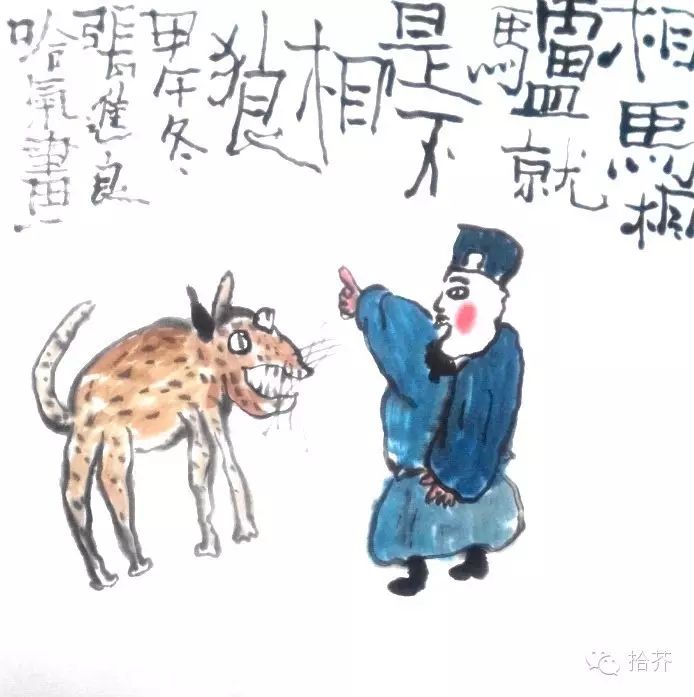 相馬相
驢就
是不
相
狼
甲午冬
張進良
哈氣畫
拾芥